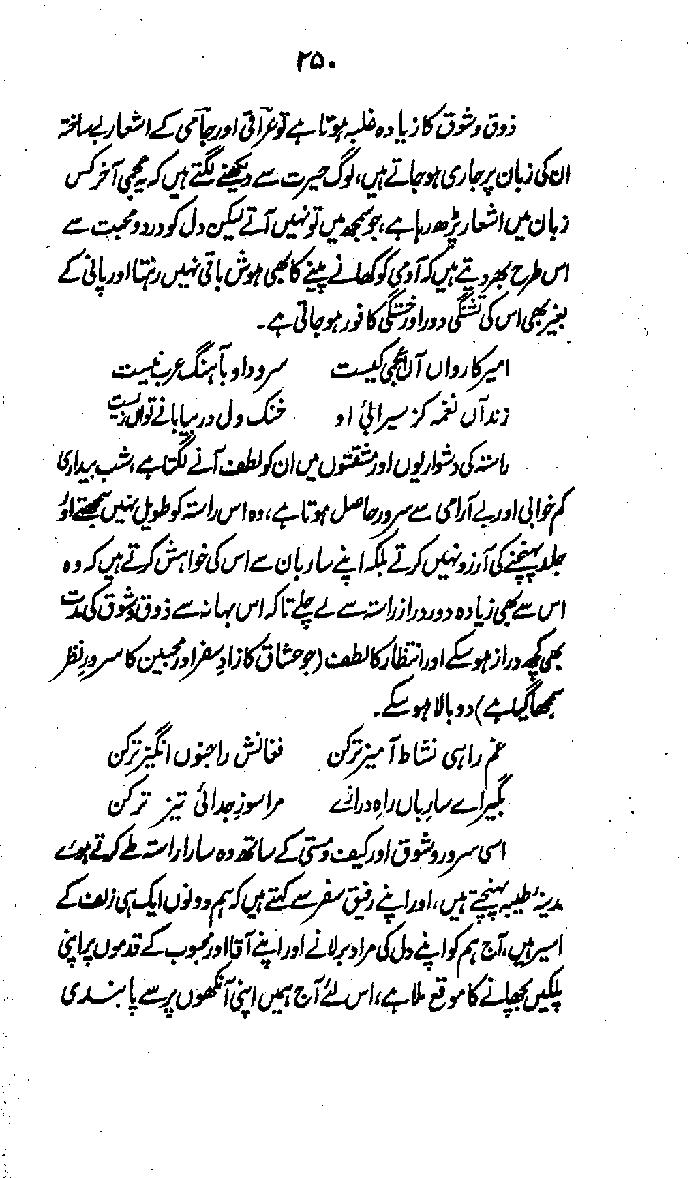 ۲۵۰
ذوق و شوق کا زیادہ غلبہ ہوتا ہے تو عراقی اور جامی کے اشعار بے ساختہ
ان کی زبان پر جاری ہو جاتے ہیں، لوگ حیرت سے دیکھنے لگتے ہیں کہ یہ عجمی آخر کس
زبان میں اشعار پڑھ رہا ہے، جو سمجھ میں تو نہیں آتے لیکن دل کو درد و محبت سے
اس طرح بھر دیتے ہیں کہ آدمی کو کھانے پینے کا بھی ہوش باقی نہیں رہتا اور پانی کے
بغیر بھی اس کی تشنگی دور اور خستگی کافور ہو جاتی ہے۔
امیر کارواں آں عجمی کیست سرود او بآہنگ عرب نیست
زند آں نغمہ کز سیرابئ او خنک دل در بیابانے تواں زیست
راستہ کی دشواریوں اور مشقتوں میں ان کو لطف آنے لگتا ہے، شب بیداری
کم خوابی اور بے آرامی سے سرور حاصل ہوتا ہے، وہ اس راستہ کو طویل نہیں سمجھتے اور
جلد پہنچنے کی آرزو نہیں کرتے بلکہ اپنے ساربان سے اس کی خواہش کرتے ہیں کہ وہ
اس سے بھی زیادہ دور دراز راستہ سے لے چلے تاکہ اس بہانہ سے ذوق و شوق کی مدت
بھی کچھ دراز ہو سکے اور انتظار کا لطف (جو عشاق کا زاد سفر اور محبین کا سرور نظر
سمجھا گیا ہے) دوبالا ہو سکے۔
غم راہی نشاط آمیز ترکن فغانش را جنوں انگیز ترکن
بگیر اے سارباں راہ درازے مرا سوز جدائی تیز ترکن
اسی سرور و شوق اور کیف و مستی کے ساتھ وہ سارا راستہ طے کرتے ہوئے
مدینہ طیبہ پہنچتے ہیں، اور اپنے رفیق سفر سے کہتے ہیں کہ ہم دونوں ایک ہی زلف کے
اسیر ہیں، آج ہم کو اپنے دل کی مراد بر لانے اور اپنے آقا اور محبوب کے قدموں پر اپنی
پلکیں بچھانے کا موقع ملا ہے، اس لئے آج ہمیں اپنی آنکھوں پر سے پابندی